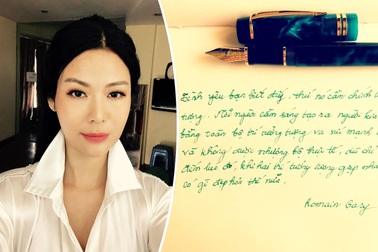 Tình yêu bạn biết đấy, thứ nó cần chính là
tượng. Mỗi người cần sáng tạo ra người kia
bằng toàn bộ trí tưởng tượng và sức mạnh
và không được nhường bộ thực tế, dù chỉ
Đến lúc đó, khi hai trí tưởng tượng gặp nhau
có gì đẹp hơn thế nữa.
Romain Gary